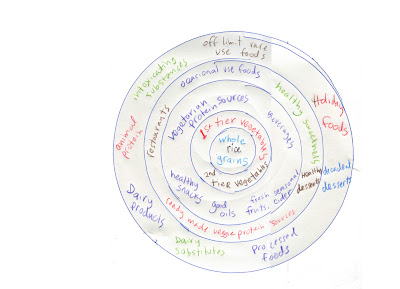 off limit rare
use foods
intoxicating
substances
ocasional use foods
healthy sweeteners
Holiday
foods
animal
protein
restaurants
vegetarian
protein sources
beverages
1st tier vegetables
whole
rice
grains
2nd
tier vegetables
healthy
snacks
good
oils
fresh seasonal
fruits, cider
healthy
desserts
decadent
desserts
Dairy
products
ready made veggie protein sources
Dairy
substitutes
processed
foods